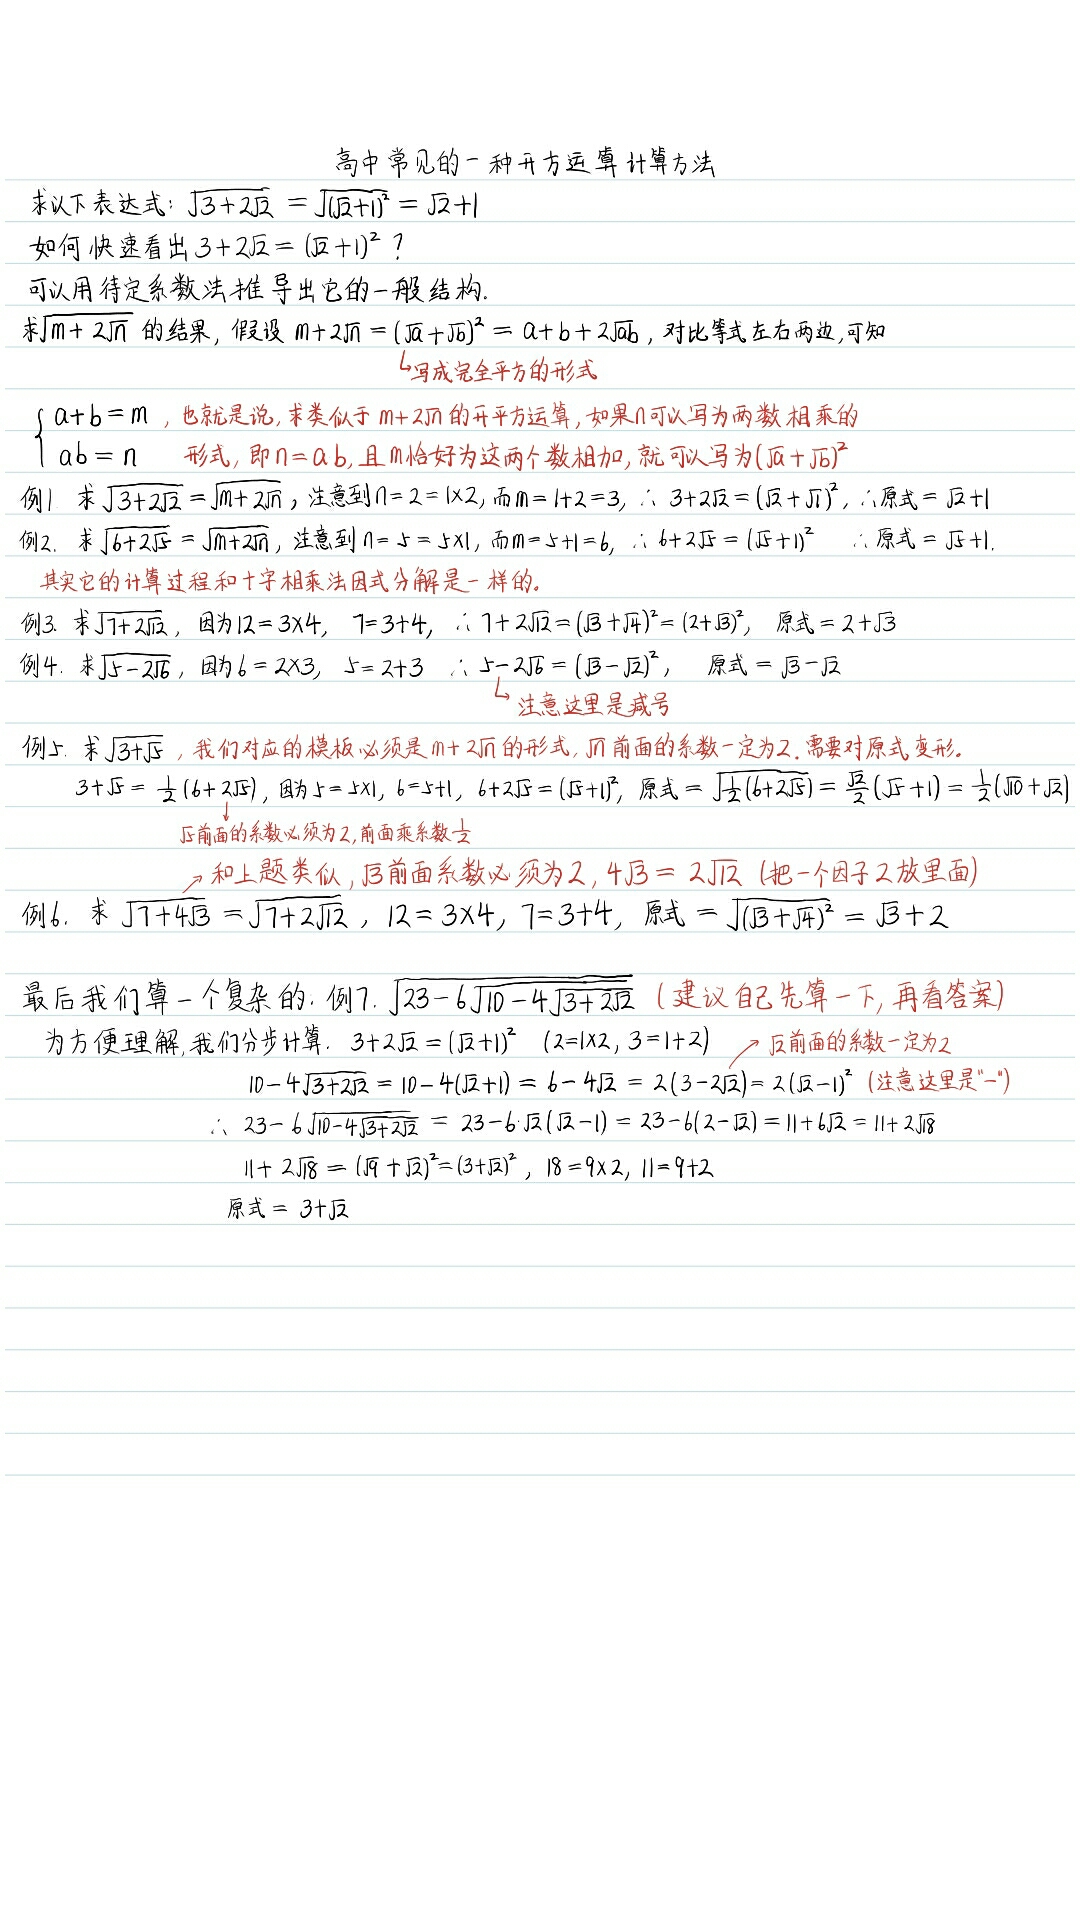 高中常见的一种开方运算计算方法
求以下表达式: √(3+2√2) = √((√2+1)²) = √2+1
如何快速看出 3+2√2 = (√2+1)² ?
可以用待定系数法推导出它的一般结构.
求√(m+2√n) 的结果, 假设 m+2√n = (√a+√b)² = a+b+2√ab, 对比等式左右两边,可知
↳写成完全平方的形式
{ a+b=m , 也就是说, 求类似于 m+2√n 的开平方运算, 如果n可以写为两数相乘的
ab=n 形式, 即n=ab, 且m恰好为这两个数相加, 就可以写为(√a+√b)²
例1. 求√(3+2√2) = √(m+2√n), 注意到n=2=1×2, 而m=1+2=3, ∴ 3+2√2=(√2+√1)², ∴原式=√2+1
例2. 求√(6+2√5) = √(m+2√n), 注意到 n=5=5×1, 而m=5+1=6, ∴ 6+2√5=(√5+1)² ∴原式=√5+1.
其实它的计算过程和十字相乘法因式分解是一样的.
例3. 求√(7+2√12), 因为12=3×4, 7=3+4, ∴ 7+2√12=(√3+√4)²=(2+√3)², 原式=2+√3
例4. 求√(5-2√6), 因为6=2×3, 5=2+3 ∴ 5-2√6=(√3-√2)², 原式=√3-√2
↳ 注意这里是减号
例5. 求√(3+√5), 我们对应的模板必须是m+2√n的形式, √n前面的系数一定为2. 需要对原式变形.
3+√5 = ½(6+2√5), 因为5=5×1, 6=5+1, 6+2√5=(√5+1)², 原式=√(½(6+2√5)) = √2/2 (√5+1) = ½(√10+√2)
↓
√5前面的系数必须为2, 前面乘系数½
↗ 和上题类似, √3前面系数必须为2, 4√3=2√12 (把一个因子2放里面)
例6. 求 √(7+4√3) = √(7+2√12), 12=3×4, 7=3+4, 原式=√((√3+√4)²) = √3+2
最后我们算一个复杂的. 例7. √(23-6√(10-4√(3+2√2))) (建议自己先算一下, 再看答案)
为方便理解, 我们分步计算. 3+2√2=(√2+1)² (2=1×2, 3=1+2) ↗ √2前面的系数一定为2
10-4√(3+2√2) = 10-4(√2+1) = 6-4√2 = 2(3-2√2) = 2(√2-1)² (注意这里是"-")
∴ 23-6√(10-4√(3+2√2)) = 23-6·√2(√2-1) = 23-6(2-√2) = 11+6√2 = 11+2√18
11+2√18 = (√9+√2)²=(3+√2)², 18=9×2, 11=9+2
原式=3+√2